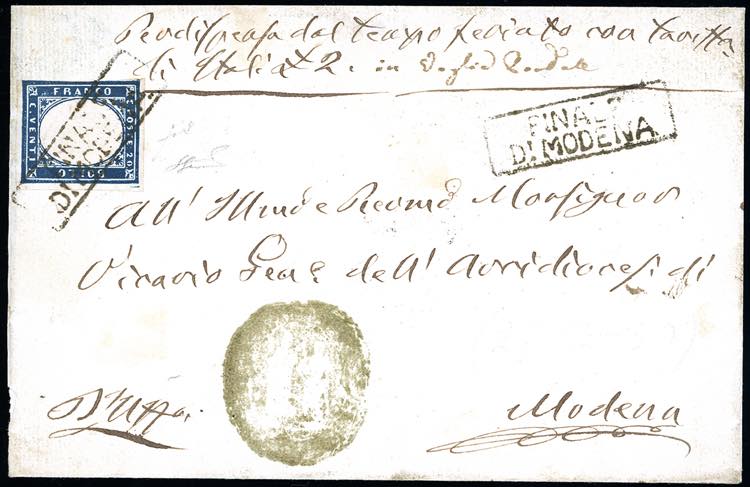 Per dispensa dal tempo feriato con tariffa
di Italia £ 2. in Vaglia Postale
FRANCO
C. VENTI
BOLLO
FINALE
DI MODENA
FINALE
DI MODENA
All' Illmo e Revmo Monsignor
Vicario Gen.e dell' Arcidiocesi di
D'Uffo.
Modena